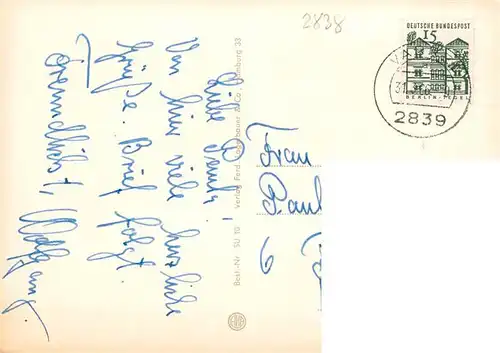 2838
DEUTSCHE BUNDESPOST
15
BERLIN-TEGEL
2839
Liebe
Von hier viele herzliche
Grüße. Brief folgt.
Freundlichst,
Wolfgang.
Verlag Ferd. Lagerbauer & Co., Hamburg 33
Best.-Nr. SU 10
Frau
Paul
6